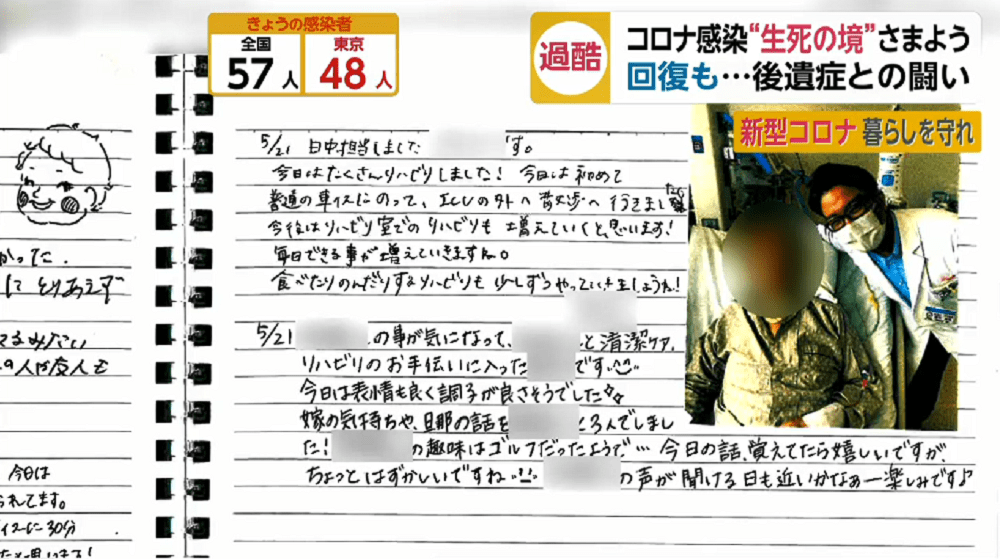 きょうの感染者
全国
57人
東京
48人
過酷
コロナ感染“生死の境”さまよう
回復も…後遺症との闘い
新型コロナ 暮らしを守れ
かった.
に とりあえず
てるみたい
の人は友人も
今日は
られてます。
イスに30分
5/21 日中担当しました す。
今日はたくさんリハビリしました! 今日は初めて
普通の車イスにのって、エレの外へ 散歩へ 行きました
今後はリハビリ室でのリハビリも 増えていくと、思います!
毎日できる事が増えていきますね。
食べたりのんだりするリハビリも 少しずつやっていきましょうね!
5/21 の事が気になって、 と清潔ケア、
リハビリのお手伝いに入った です。
今日は表情も良く調子が良さそうでした
嫁の気持ちや、旦那の話を と3人でしまし
た! の趣味はゴルフだったようで… 今日の話、覚えてたら嬉しいですが、
ちょっとはずかしいですね の声が聞ける日も近いかなぁー楽しみです♪